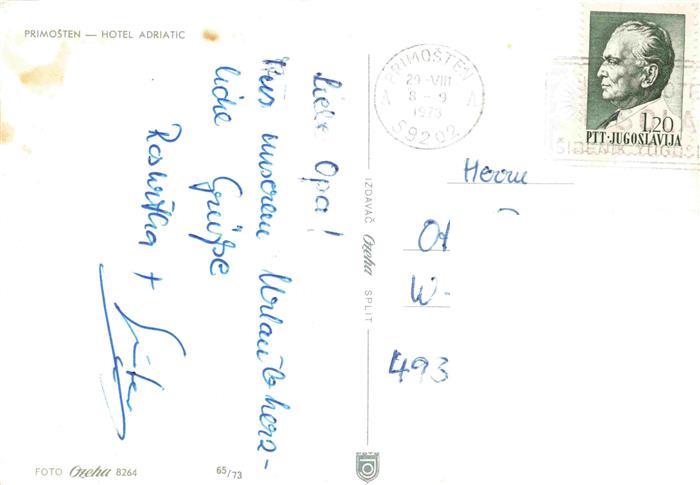 PRIMOŠTEN — HOTEL ADRIATIC
Liebe Opa!
Aus unserem Urlaub herz-
liche Grüße
Roswitha +
PRIMOŠTEN
29-VIII
8-9
1973
59202
1,20
PTT·JUGOSLAVIJA
Herrn
W-
493
IZDAVAČ Ozeha SPLIT
FOTO Ozeha 8264
65/73